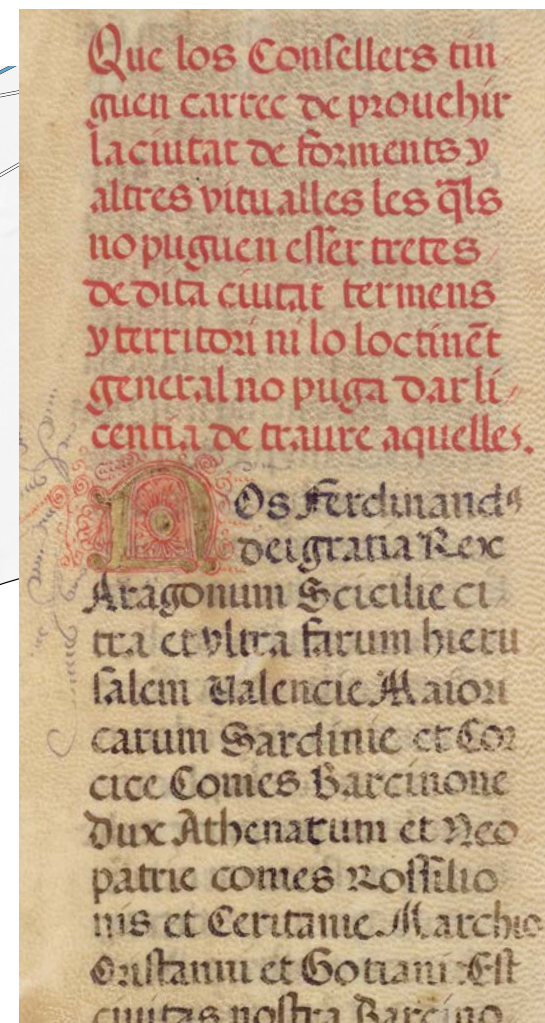 Que los Consellers tin
guen carrec de prouehir
la ciutat de forments y
altres vitualles les q̃ls
no puguen esser tretes
de dita ciutat termens
y territori ni lo loctinẽt
general no puga dar li
centia de traure aquelles.
Nos Ferdinandꝰ
dei gratia Rex
Aragonum Scicilie ci
tra et vltra farum hieru
salem Valencie Maiori
carum Sardinie et Cor
cice Comes Barcinone
Dux Athenarum et Neo
patrie comes Rossilio
nis et Ceritanie Marchio
Oristanni et Gotiani Est
ciuitas nostra Barcino